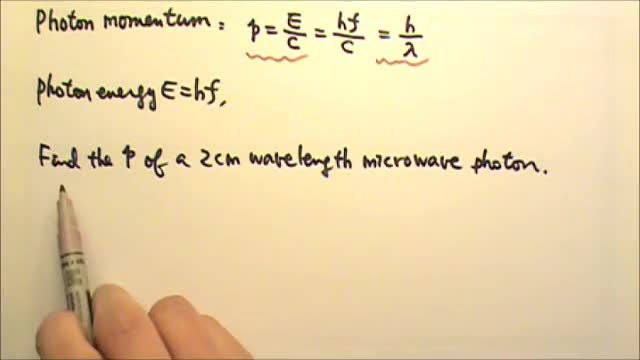 Photon momentum: p = E/C = hf/C = h/λ
photon energy E=hf,
Find the p of a 2cm wavelength microwave photon.